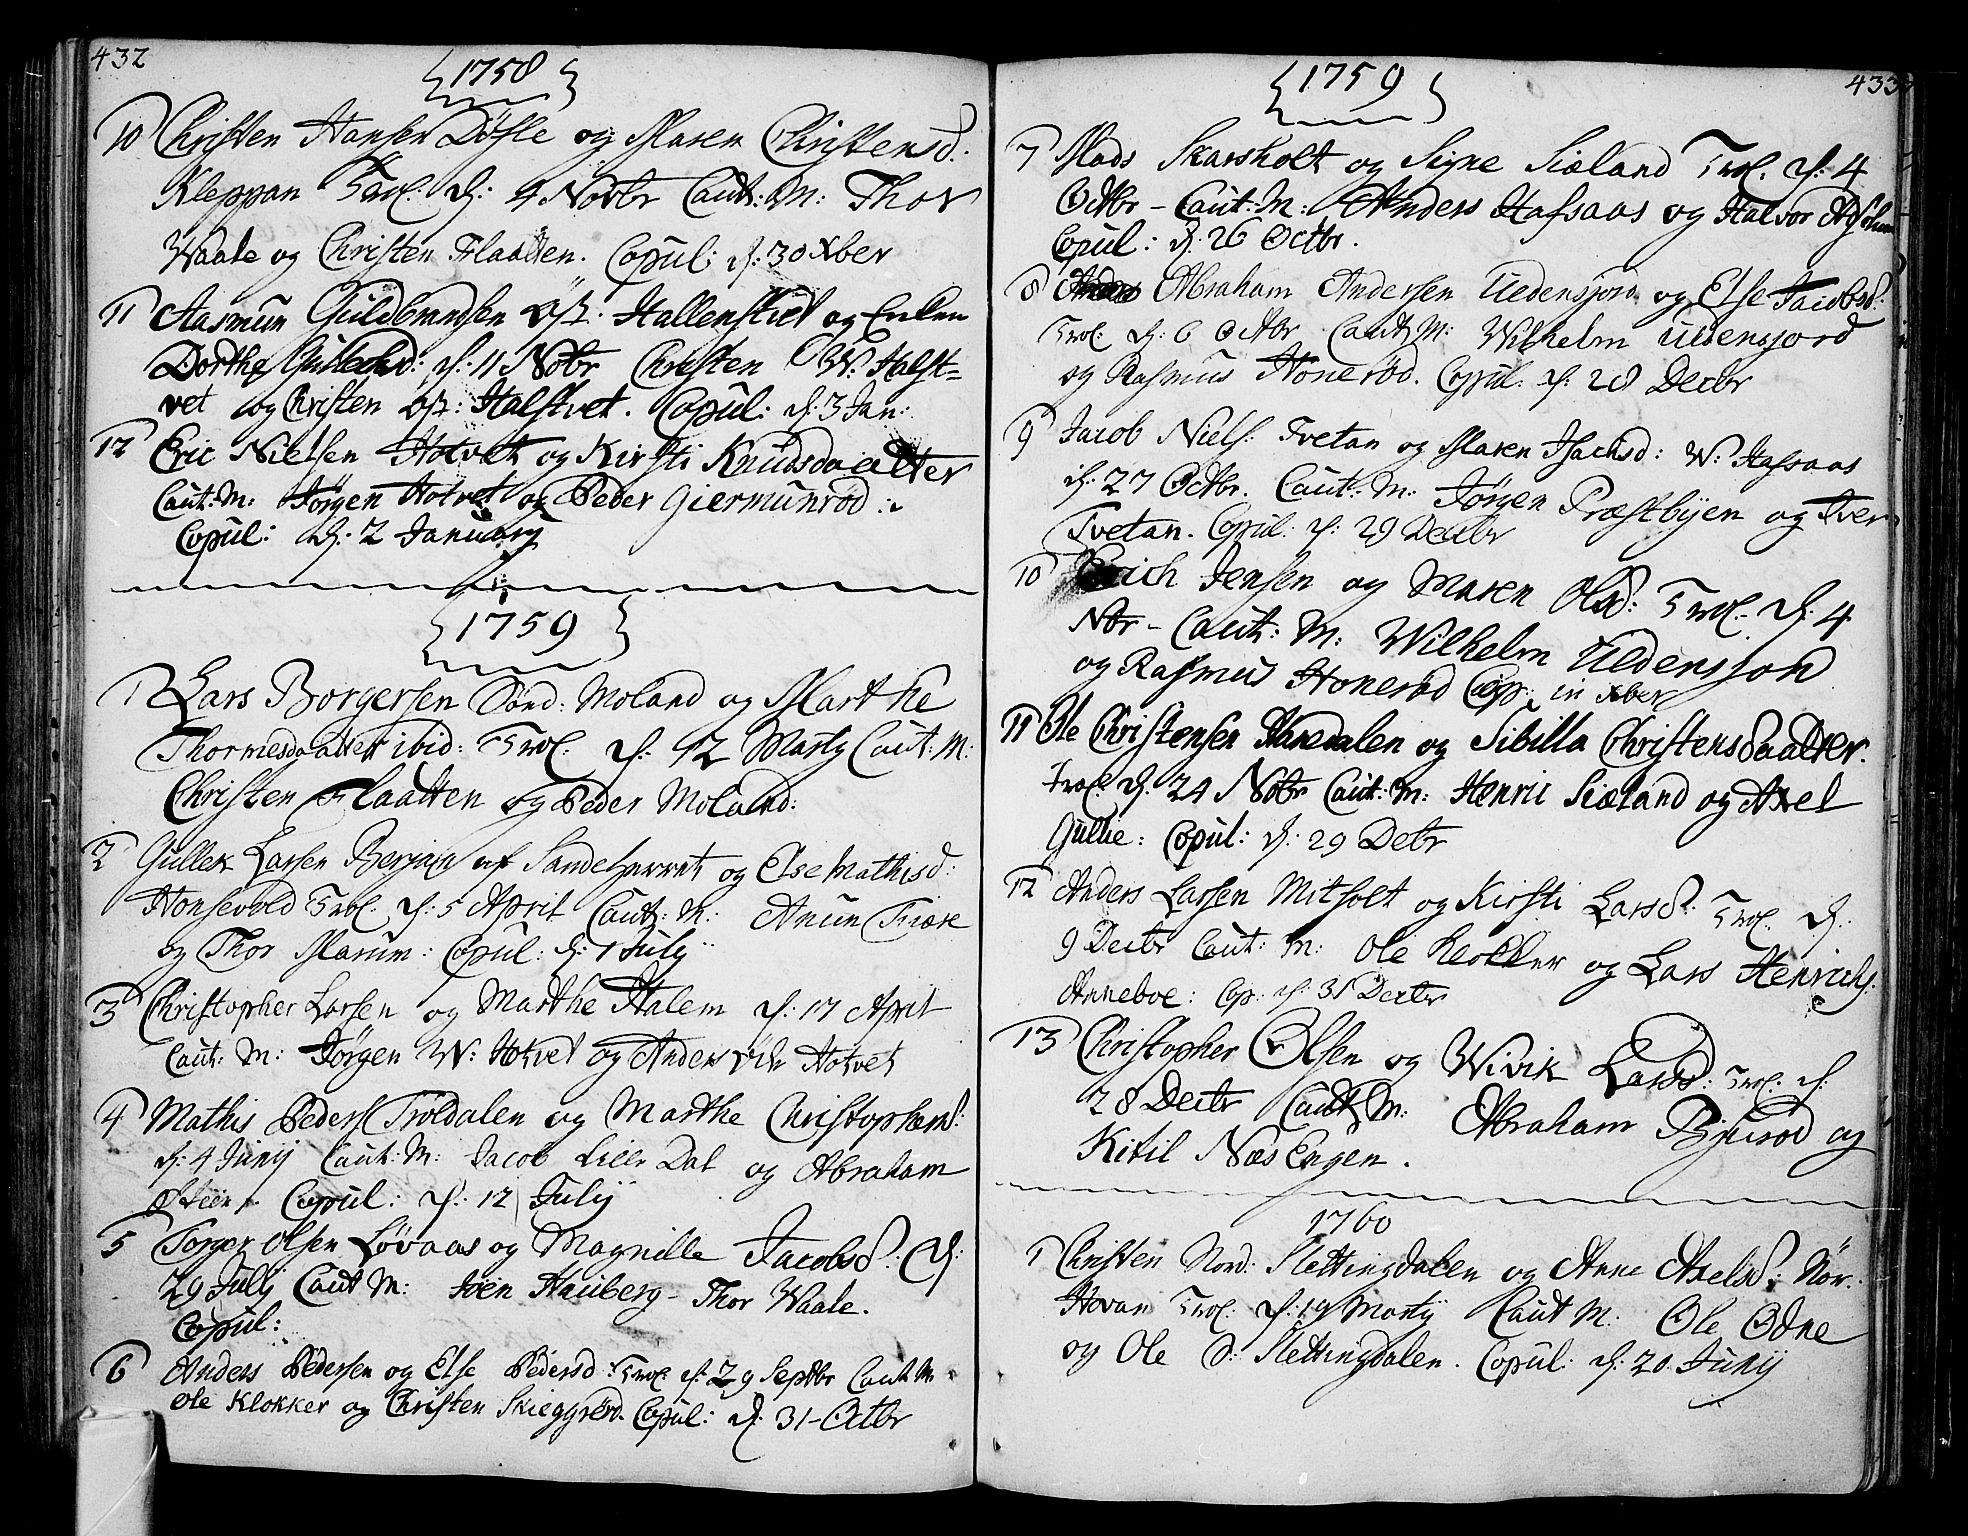 432
1758
10 Christen Hansen Døfle og Maren Christensd.
Kleppan Trol: d: 4 Novbr Caut: M: Thor
Waale og Christen Flaatten. Copul: d: 30 Xber
11 Aasmun Guldbrandsen Øst: Hallenstvet og Enken
Dorthe d: 11 Nobr Christen W: Halst-
vet og Christen Øst: Halstvet. Copul: d: 3 Jan:
12 Eric Nielsen Hotvet og Kirsti Knudsdaatter
Caut: M: Jørgen Hotvet og Peder Giermunrød:
Copul: d. 2 January
1759
1 Lars Borgersen Sønd: Moland og Marthe
Thormesdaatter ibid: Trol. d: 12 Marty Caut: M:
Christen Flaatten og Peder Moland:
2 Gullek Larsen Berjan af Sandeherret og Else Mathisd:
Honsevold Trol. d: 5 April Caut: M: Anun
og Thor Marum: Copul: d: 1 July
3 Christopher Larsen og Marthe Halem d: 17 April
Caut: M: Jørgen W: Hotvet og Anders Hotvet
4 Mathis Peders Troldalen og Marthe Christophersd:
d: 4 Junij Caut: M: Jacob Lille Dal og Abraham
Copul: d: 12 July
5 Torger Olsen Løvaas og Magnille Jacobsd: d:
29 July Caut M: Joen Hauberg - Thor Waale.
Copul:
6 Anders Pedersen og Else Pedersd: Trol. d: 29 Septbr Caut M:
Ole Klokker og Christen Skieggerød. Copul: d. 31 - Octbr
433
1759
7 Mads Skarsholt og Signe Siæland Trol. d: 4
Octbr - Caut: M: Anders Hafsaas og Halvor
Copul: d. 26 Octbr.
8 Abraham Andersen Uldensjord og Else Jacobsd:
Trol. d: 6 Octbr Caut M: Wilhelm Uldensjord
og Rasmus Honerød. Copul: d: 28 Decbr
9 Jacob Niels: Tvetan og Maren Isachsd: W: Hafsaas
d: 27 Octbr. Caut: M: Jørgen Præstbyen og Iver
Tvetan. Copul: d: 29 Decbr
10 Erich Jensen og Maren Olsd: Trol. d: 4
Nbr - Caut: M: Wilhelm Uldensjord
og Rasmus Honerød Cop: in Xber
11 Ole Christensen Hanedalen og Sibilla Christensdaatter.
Trol: d. 24 Nobr Caut: M: Henric Siæland og Axel
Gullie: Copul: d: 29 Decbr
12 Anders Larsen Mitholt og Kirsti Larsd: Trol. d:
9 Decbr Caut: M: Ole Klokker og Lars Henrichs.
Anneboe: Cop: d: 31 Decbr
13 Christopher Olsen og Wivik Larsd: Trol. d:
28 Decbr Caut M: Abraham Bjurød og
Kitil Næs Engen.
1760
1 Christen Nord: Slettingdalen og Anne Axelsd: Nør:
Hovan Trol. d: 19 Marty Caut M: Ole Odne
og Ole S: Slettingdalen. Copul: d: 20 Junij